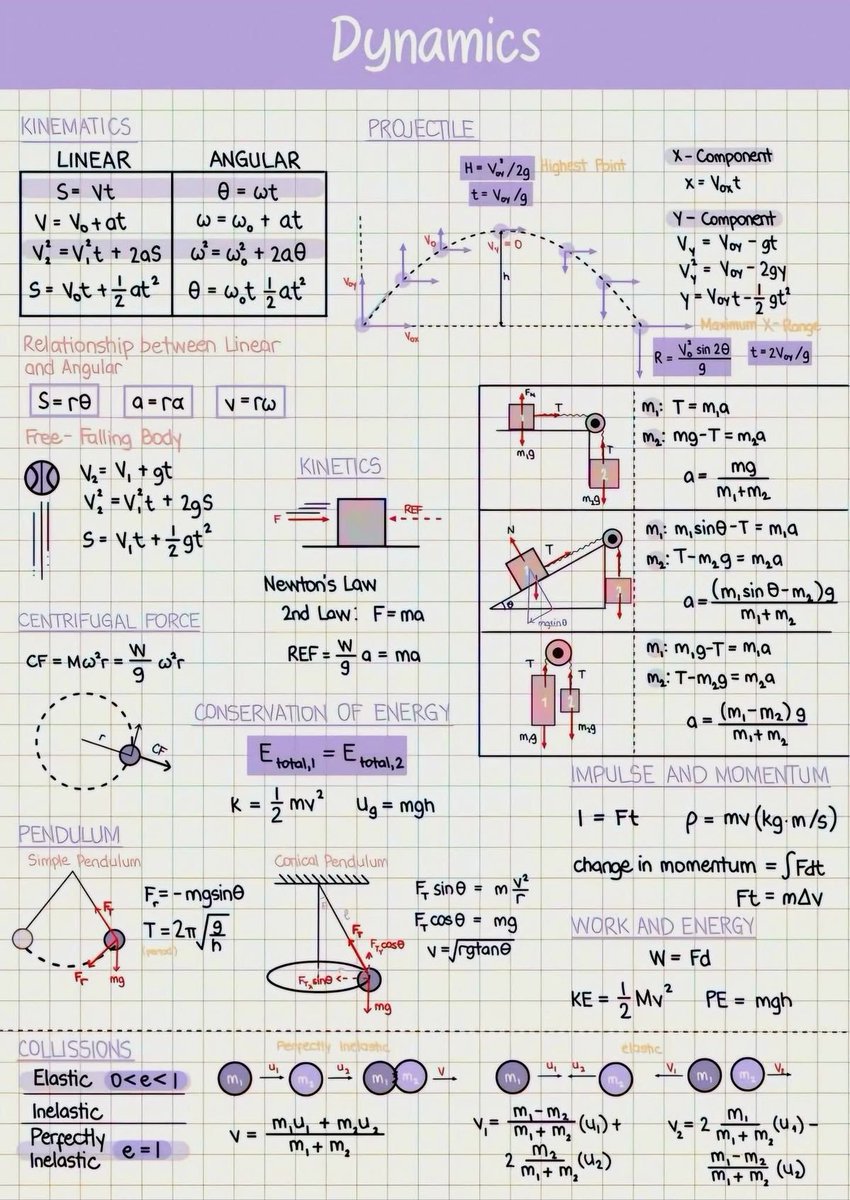 Dynamics
KINEMATICS
LINEAR ANGULAR
S = Vt θ = ωt
V = V₀ + at ω = ω₀ + at
V₂² = V₁²t + 2aS ω² = ω₀² + 2aθ
S = V₀t + 1/2 at² θ = ω₀t 1/2 at²
Relationship between Linear
and Angular
S = rθ a = rα v = rω
Free-Falling Body
V₂ = V₁ + gt
V₂² = V₁²t + 2gS
S = V₁t + 1/2 gt²
PROJECTILE
H = V₀y²/2g Highest Point
t = V₀y/g
V₀y
V₀
Vy = 0
h
V₀x
X-Component
x = V₀xt
Y-Component
Vy = V₀y - gt
Vy² = V₀y - 2gy
y = V₀yt - 1/2 gt²
Maximum X-Range
R = V₀² sin 2θ / g t = 2V₀y/g
KINETICS
F REF
Newton's Law
2nd Law: F = ma
REF = W/g a = ma
FN
T
m₁g
T
2
m₂g
m₁: T = m₁a
m₂: mg - T = m₂a
a = mg / m₁ + m₂
N
T
1
θ
mgsinθ
m₁: m₁sinθ - T = m₁a
m₂: T - m₂g = m₂a
a = (m₁ sin θ - m₂)g / m₁ + m₂
T T
1 2
m₁g m₂g
m₁: m₁g - T = m₁a
m₂: T - m₂g = m₂a
a = (m₁ - m₂) g / m₁ + m₂
CENTRIFUGAL FORCE
CF = Mω²r = W/g ω²r
r CF
CONSERVATION OF ENERGY
E total,1 = E total,2
K = 1/2 mv² Ug = mgh
IMPULSE AND MOMENTUM
I = Ft ρ = mv (kg·m/s)
change in momentum = ∫Fdt
Ft = mΔv
PENDULUM
Simple Pendulum
FT
Fr mg
Fr = -mgsinθ
T = 2π√(g/h)
(period)
Conical Pendulum
ℓ
FT
FTy cosθ
FTx sinθ
mg
FT sin θ = m v²/r
FT cos θ = mg
v = √rgtanθ
WORK AND ENERGY
W = Fd
KE = 1/2 Mv² PE = mgh
COLLISSIONS
Elastic 0<e<1
Inelastic
Perfectly
Inelastic e = 1
Perfectly Inelastic
m₁ u₁ m₂ u₂ m₁ m₂ V
V = m₁u₁ + m₂u₂ / m₁ + m₂
elastic
m₁ u₁ u₂ m₂ V₁ m₁ m₂ V₂
V₁ = m₁ - m₂ / m₁ + m₂ (u₁) +
2 m₂ / m₁ + m₂ (u₂)
V₂ = 2 m₁ / m₁ + m₂ (u₁) -
m₁ - m₂ / m₁ + m₂ (u₂)